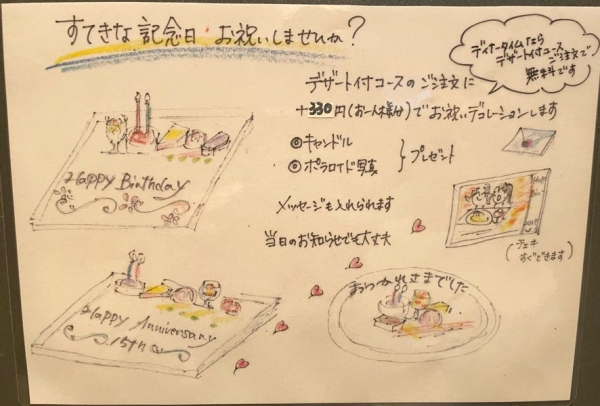 すてきな記念日 お祝いしませんか?
ディナータイムなら
デザート付コース
ご注文で
無料です
デザート付コースのご注文に
+330円(お一人様分)でお祝いデコレーションします
◎キャンドル
◎ポラロイド写真
}プレゼント
メッセージも入れられます
当日のお知らせでも大丈夫
(チェキ
すぐできます)
Happy Birthday
Happy Anniversary
15th
おつかれさまでした